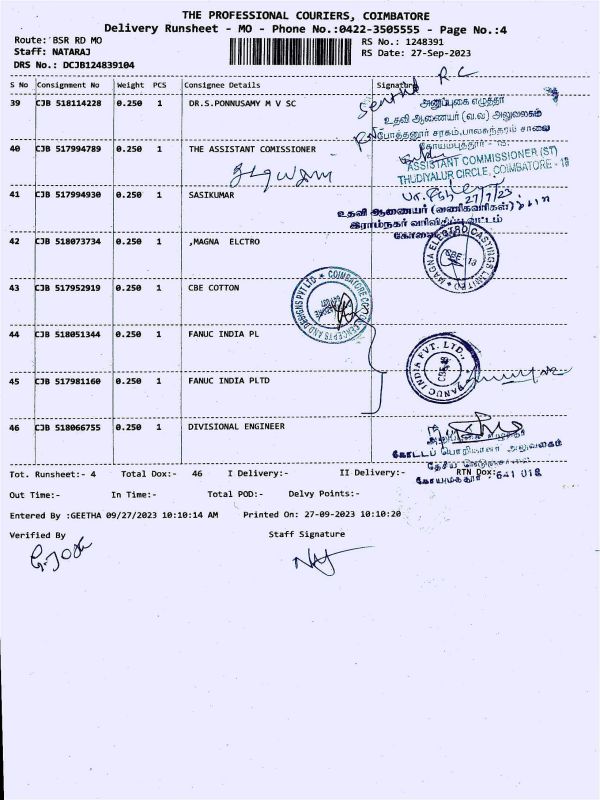 THE PROFESSIONAL COURIERS, COIMBATORE
Delivery Runsheet - MO - Phone No.:0422-3505555 - Page No.:4
Route: BSR RD MO
RS No.: 1248391
Staff: NATARAJ
RS Date: 27-Sep-2023
DRS No.: DCJB124839104
S No Consignment No Weight PCS Consignee Details Signature
R C
39 CJB 518114228 0.250 1 DR.S.PONNUSAMY M V SC
அனுப்புகை எழுத்தர்
உதவி ஆணையர் (வ.வ) அலுவலகம்
போத்தனூர் சரகம், பாலசுந்தரம் சாலை
கோயம்புத்தூர் - 18.
40 CJB 517994789 0.250 1 THE ASSISTANT COMISSIONER
ASSISTANT COMMISSIONER (ST)
THUDIYALUR CIRCLE, COIMBATORE - 18
41 CJB 517994930 0.250 1 SASIKUMAR
உதவி ஆணையர் (வணிகவரிகள்)
இராம்நகர் வரிவிதிப்பு வட்டம்
42 CJB 518073734 0.250 1 ,MAGNA ELCTRO
MAGNA ELECTRO CASTINGS LIMITED
CBE 18
43 CJB 517952919 0.250 1 CBE COTTON
44 CJB 518051344 0.250 1 FANUC INDIA PL
FANUC INDIA PVT. LTD.,
45 CJB 517981160 0.250 1 FANUC INDIA PLTD
46 CJB 518066755 0.250 1 DIVISIONAL ENGINEER
கோட்டப் பொறியாளர் அலுவலகம்
Tot. Runsheet:- 4 Total Dox:- 46 I Delivery:- II Delivery:- RTN Dox:-
641 018
Out Time:- In Time:- Total POD:- Delvy Points:-
Entered By :GEETHA 09/27/2023 10:10:14 AM Printed On: 27-09-2023 10:10:20
Verified By Staff Signature